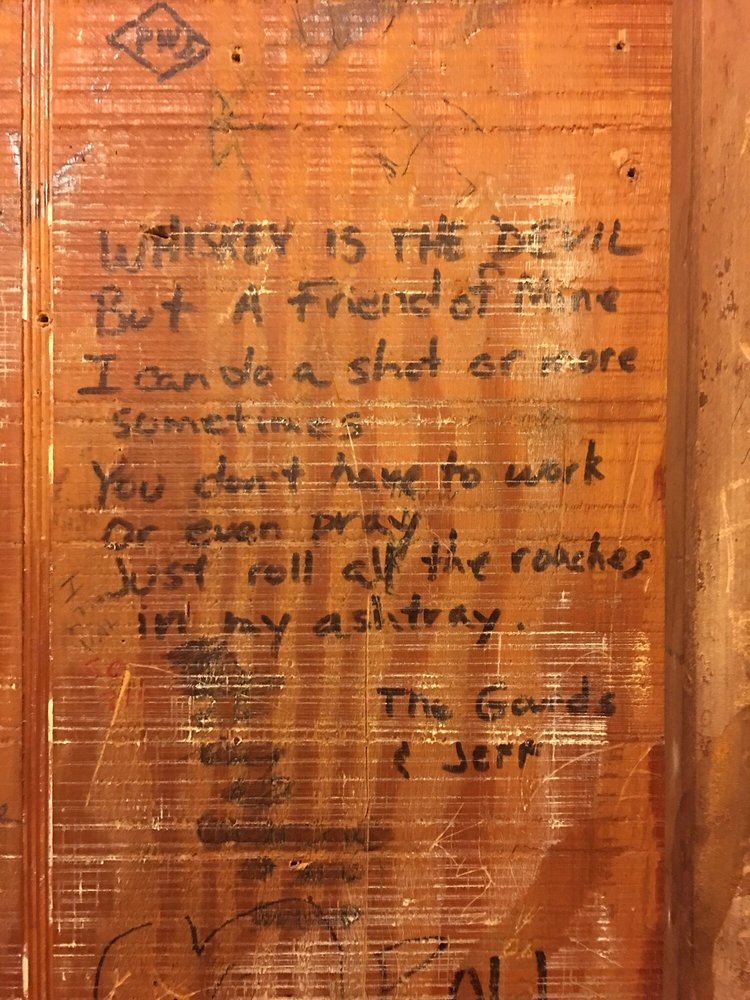 PWS
WHISKEY IS THE DEVIL
But A Friend of Mine
I can do a shot or more
sometimes
You don't have to work
Or even pray
Just roll all the roaches
in my ashtray.
The Gourds
& Jeff